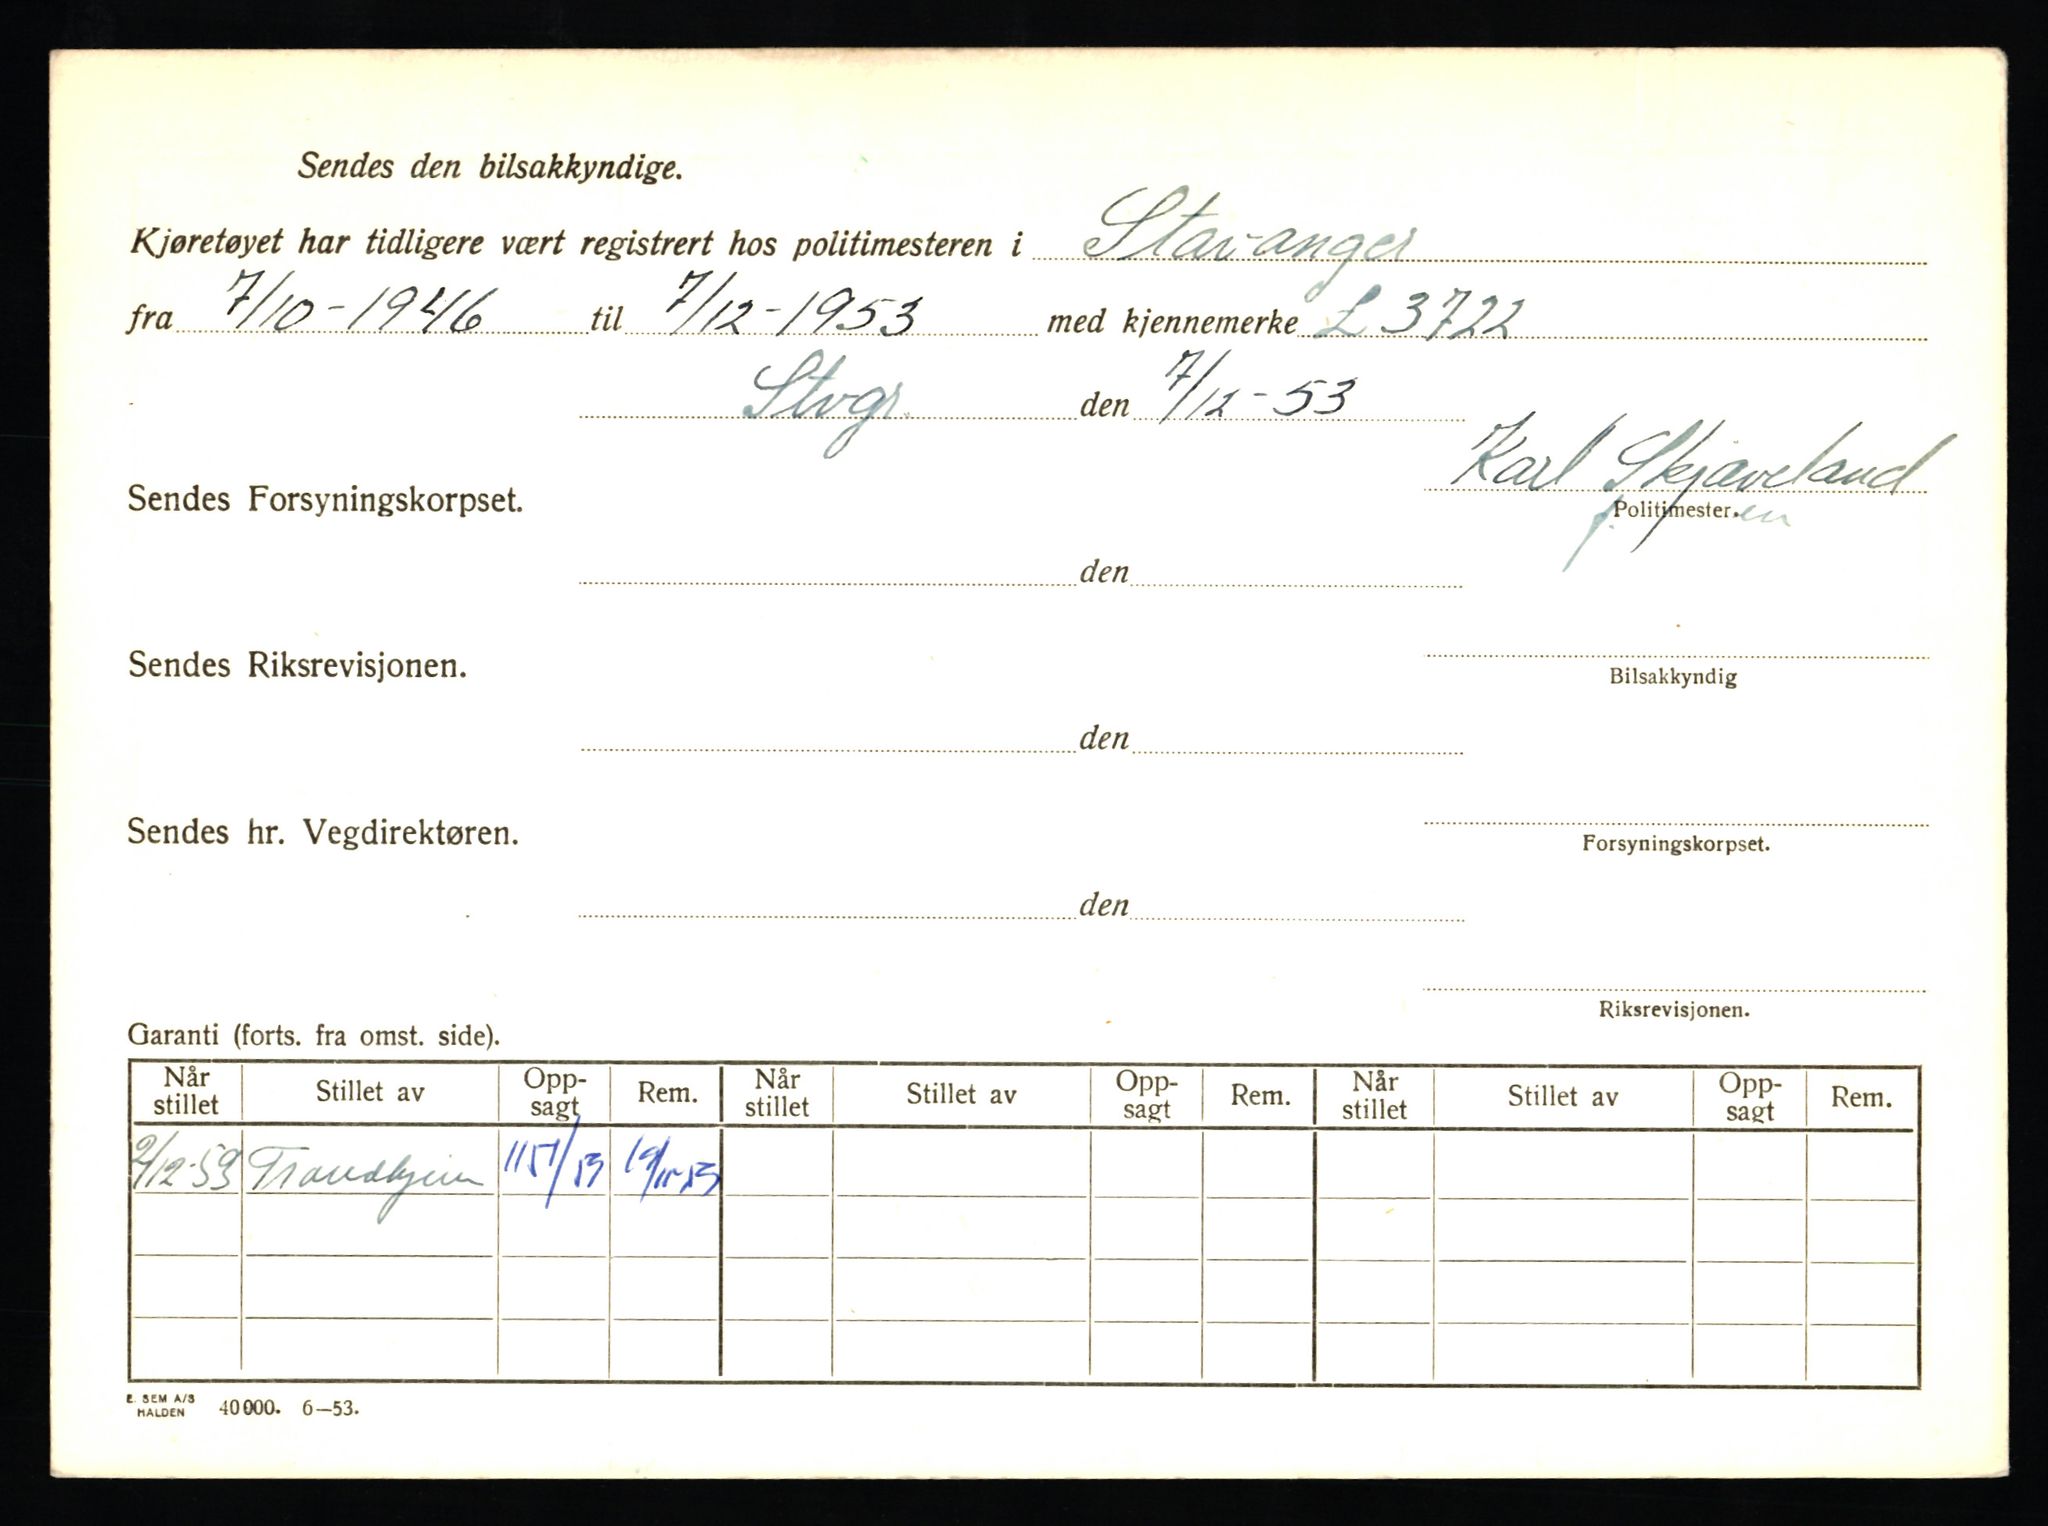 Sendes den bilsakkyndige.
Kjøretøyet har tidligere vært registrert hos politimesteren i Stavanger
fra 7/10-1946 til 7/12-1953 med kjennemerke L 3722
Stvgr. den 7/12-53
Karl Skjæveland
Sendes Forsyningskorpset.
f. Politimester.en
den
Sendes Riksrevisjonen.
Bilsakkyndig
den
Sendes hr. Vegdirektøren.
Forsyningskorpset.
den
Riksrevisjonen.
Garanti (forts. fra omst. side).
Når stillet Stillet av Opp-sagt Rem. Når stillet Stillet av Opp-sagt Rem. Når stillet Stillet av Opp-sagt Rem.
Trondhjem
E. SEM A/S
HALDEN 40000. 6—53.